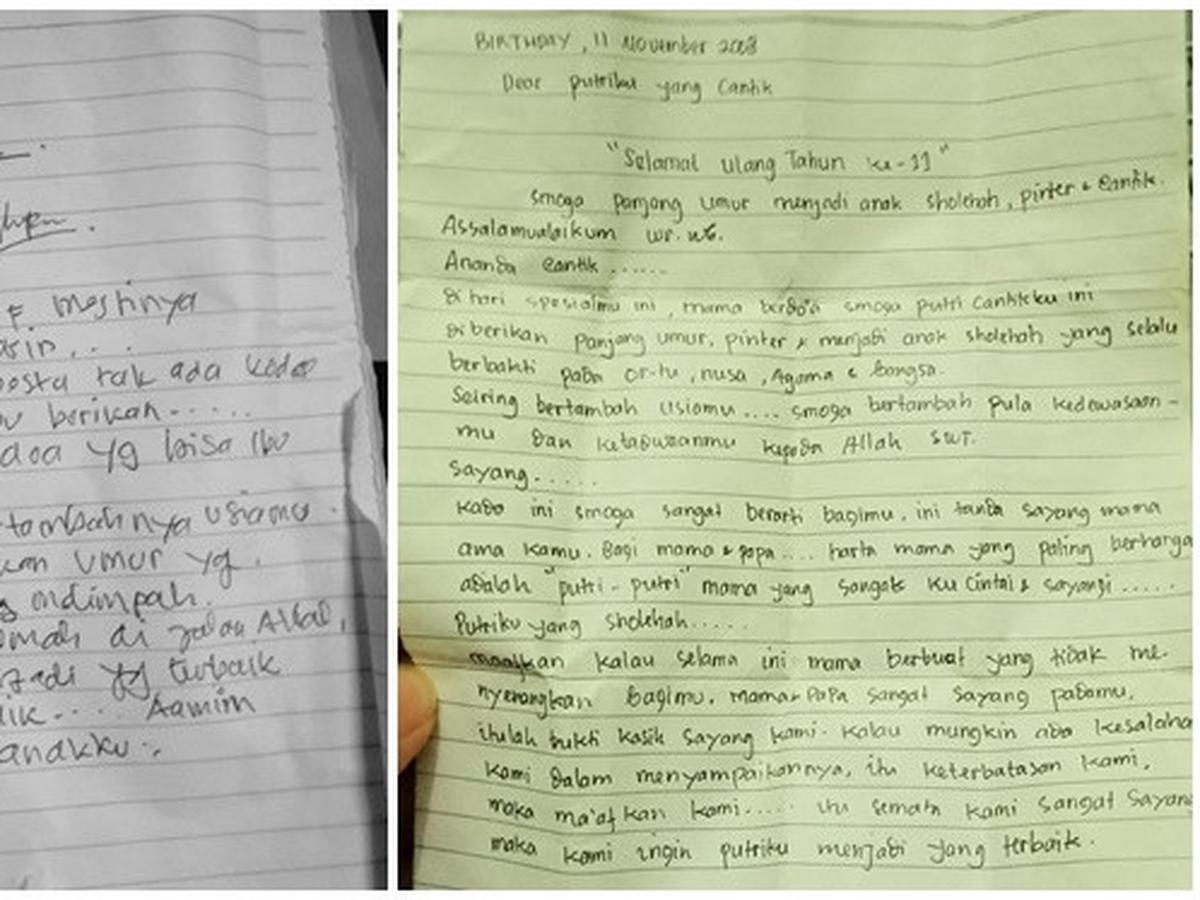 F. mestinya
tak ada kado
berikan.....
doa yg bisa Ibu
tambahnya usiamu.
umur yg.
ndimpah.
di jalan Allah,
yg terbaik
.... Aamiin
anakku..
BIRTHDAY, 11 November 2008
Dear putriku yang Cantik
"Selamat ulang Tahun ke-11"
smoga panjang umur menjadi anak sholehah, pinter & Cantik.
Assalamualaikum wr. wb.
Ananda Cantik ......
di hari spesialmu ini, mama berdo'a smoga putri Cantikku ini
diberikan panjang umur, pinter & menjadi anak sholehah yang selalu
berbakti pada or-tu, nusa, Agama & bangsa.
Seiring bertambah usiamu .... smoga bertambah pula kedewasaan-
mu dan ketaqwaanmu kepada Allah SWT.
Sayang.....
kado ini smoga sangat berarti bagimu, ini tanda sayang mama
ama kamu. Bagi mama & papa .... harta mama yang paling berharga
adalah "putri-putri" mama yang sangat ku cintai & sayangi .....
Putriku yang sholehah.....
maafkan kalau selama ini mama berbuat yang tidak me-
nyenangkan bagimu. mama & papa sangat sayang padamu,
itulah bukti kasih sayang kami. kalau mungkin ada kesalaha
kami dalam menyampaikannya, itu keterbatasan kami,
maka ma'afkan kami..... itu semata kami sangat sayan
maka kami ingin putriku menjadi yang terbaik.